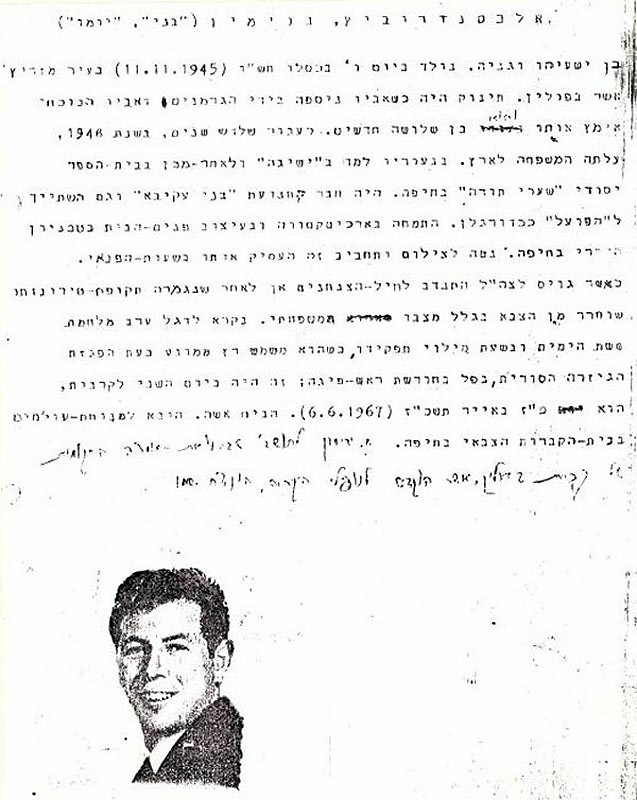 אלכסנדרוביץ, בנימין ("בני", "יומו")
בן ישעיהו וגניה. נולד ביום ו' בכסלו תש"ו (11.11.1945) בעיר
אשר בפולין. תינוק היה כשאביו ניספה בידי הגרמנים ואביו הנוכחי
אימץ אותו בן שלושה חדשים. כעבור שלוש שנים, בשנת 1948,
עלתה המשפחה לארץ. בנעוריו למד ב"ישיבה" ולאחר-מכן בבית-הספר
יסודי "שערי תורה" בחיפה. היה חבר בתנועת "בני עקיבא" וגם השתייך
ל"הפועל" ככדורגלן. התמחה בארכיטקטורה ובעיצוב פנים-הבית בטכניון
בחיפה. נטה לצילום ותחביב זה העסיק אותו בשעות-הפנאי.
כאשר גויס לצה"ל התנדב לחיל-הצנחנים אך לאחר שנגמרה תקופת-טירונותו
שוחרר מן הצבא בגלל מצבו המשפחתי. נקרא לדגל ערב מלחמת
ששת הימים ובשעת מילוי תפקידו, כשהוא משמש רץ ממונע בעת הפגזת
הגיזרה הסורית, נפל בחורשת ראש-פינה; זה היה ביום השני לקרבות,
הוא כ"ז באייר תשכ"ז (6.6.1967). הניח אשה. הובא למנוחת-עולמים
בבית-הקברות הצבאי בחיפה.